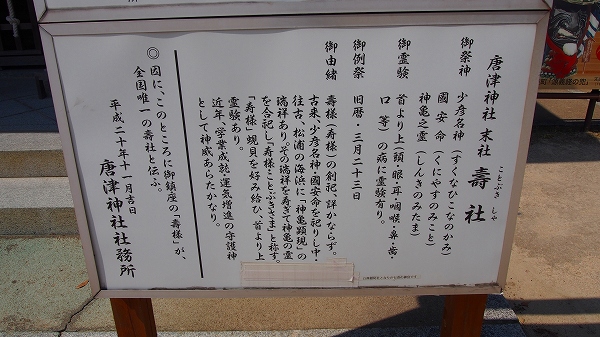 唐津神社 末社 壽社
ことぶき しゃ
御祭神 少彦名神(すくなひこなのかみ)
國安命(くにやすのみこと)
神亀之霊(しんきのみたま)
御霊験 首より上(頭・眼・耳・咽喉・鼻・歯・
口 等)の病に霊験有り。
御例祭 旧暦・三月二十三日
御由緒 壽様(寿様)の創祀、詳かならず。
古来、少彦名神・國安命を祀りし中・
往古、松浦の海浜に「神亀顕現」の
瑞祥あり。その瑞祥を寿ぎて神亀の霊
を合祀し「寿様ことぶきさま」と称す。
「寿様」蜆貝を好み給ひ、首より上
霊験あり。
近年、学業成就・運気増進の守護神
として神威あらたかなり。
◎因に、このところに御鎮座の「壽様」が、
全国唯一の壽社と伝ふ。
平成二十年十一月吉日
唐津神社社務所